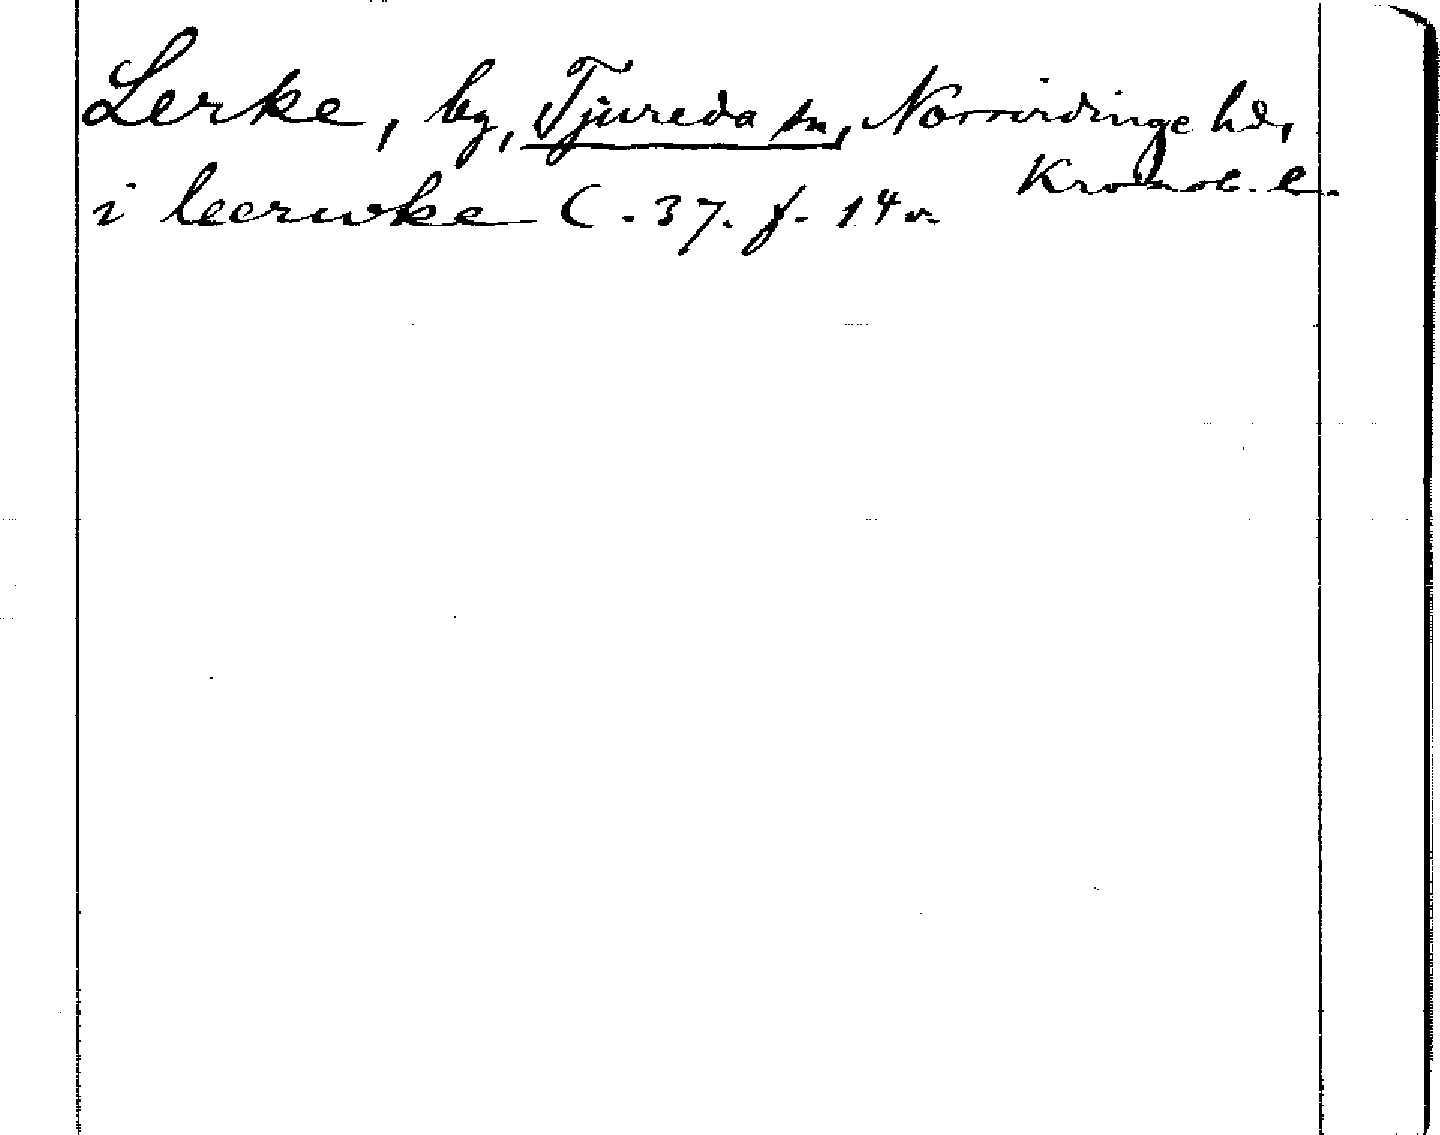 Lerke, by, Tjureda sn, Norrvidinge hd,
Kronob. l.
i leerwke C. 37. f. 14 v.